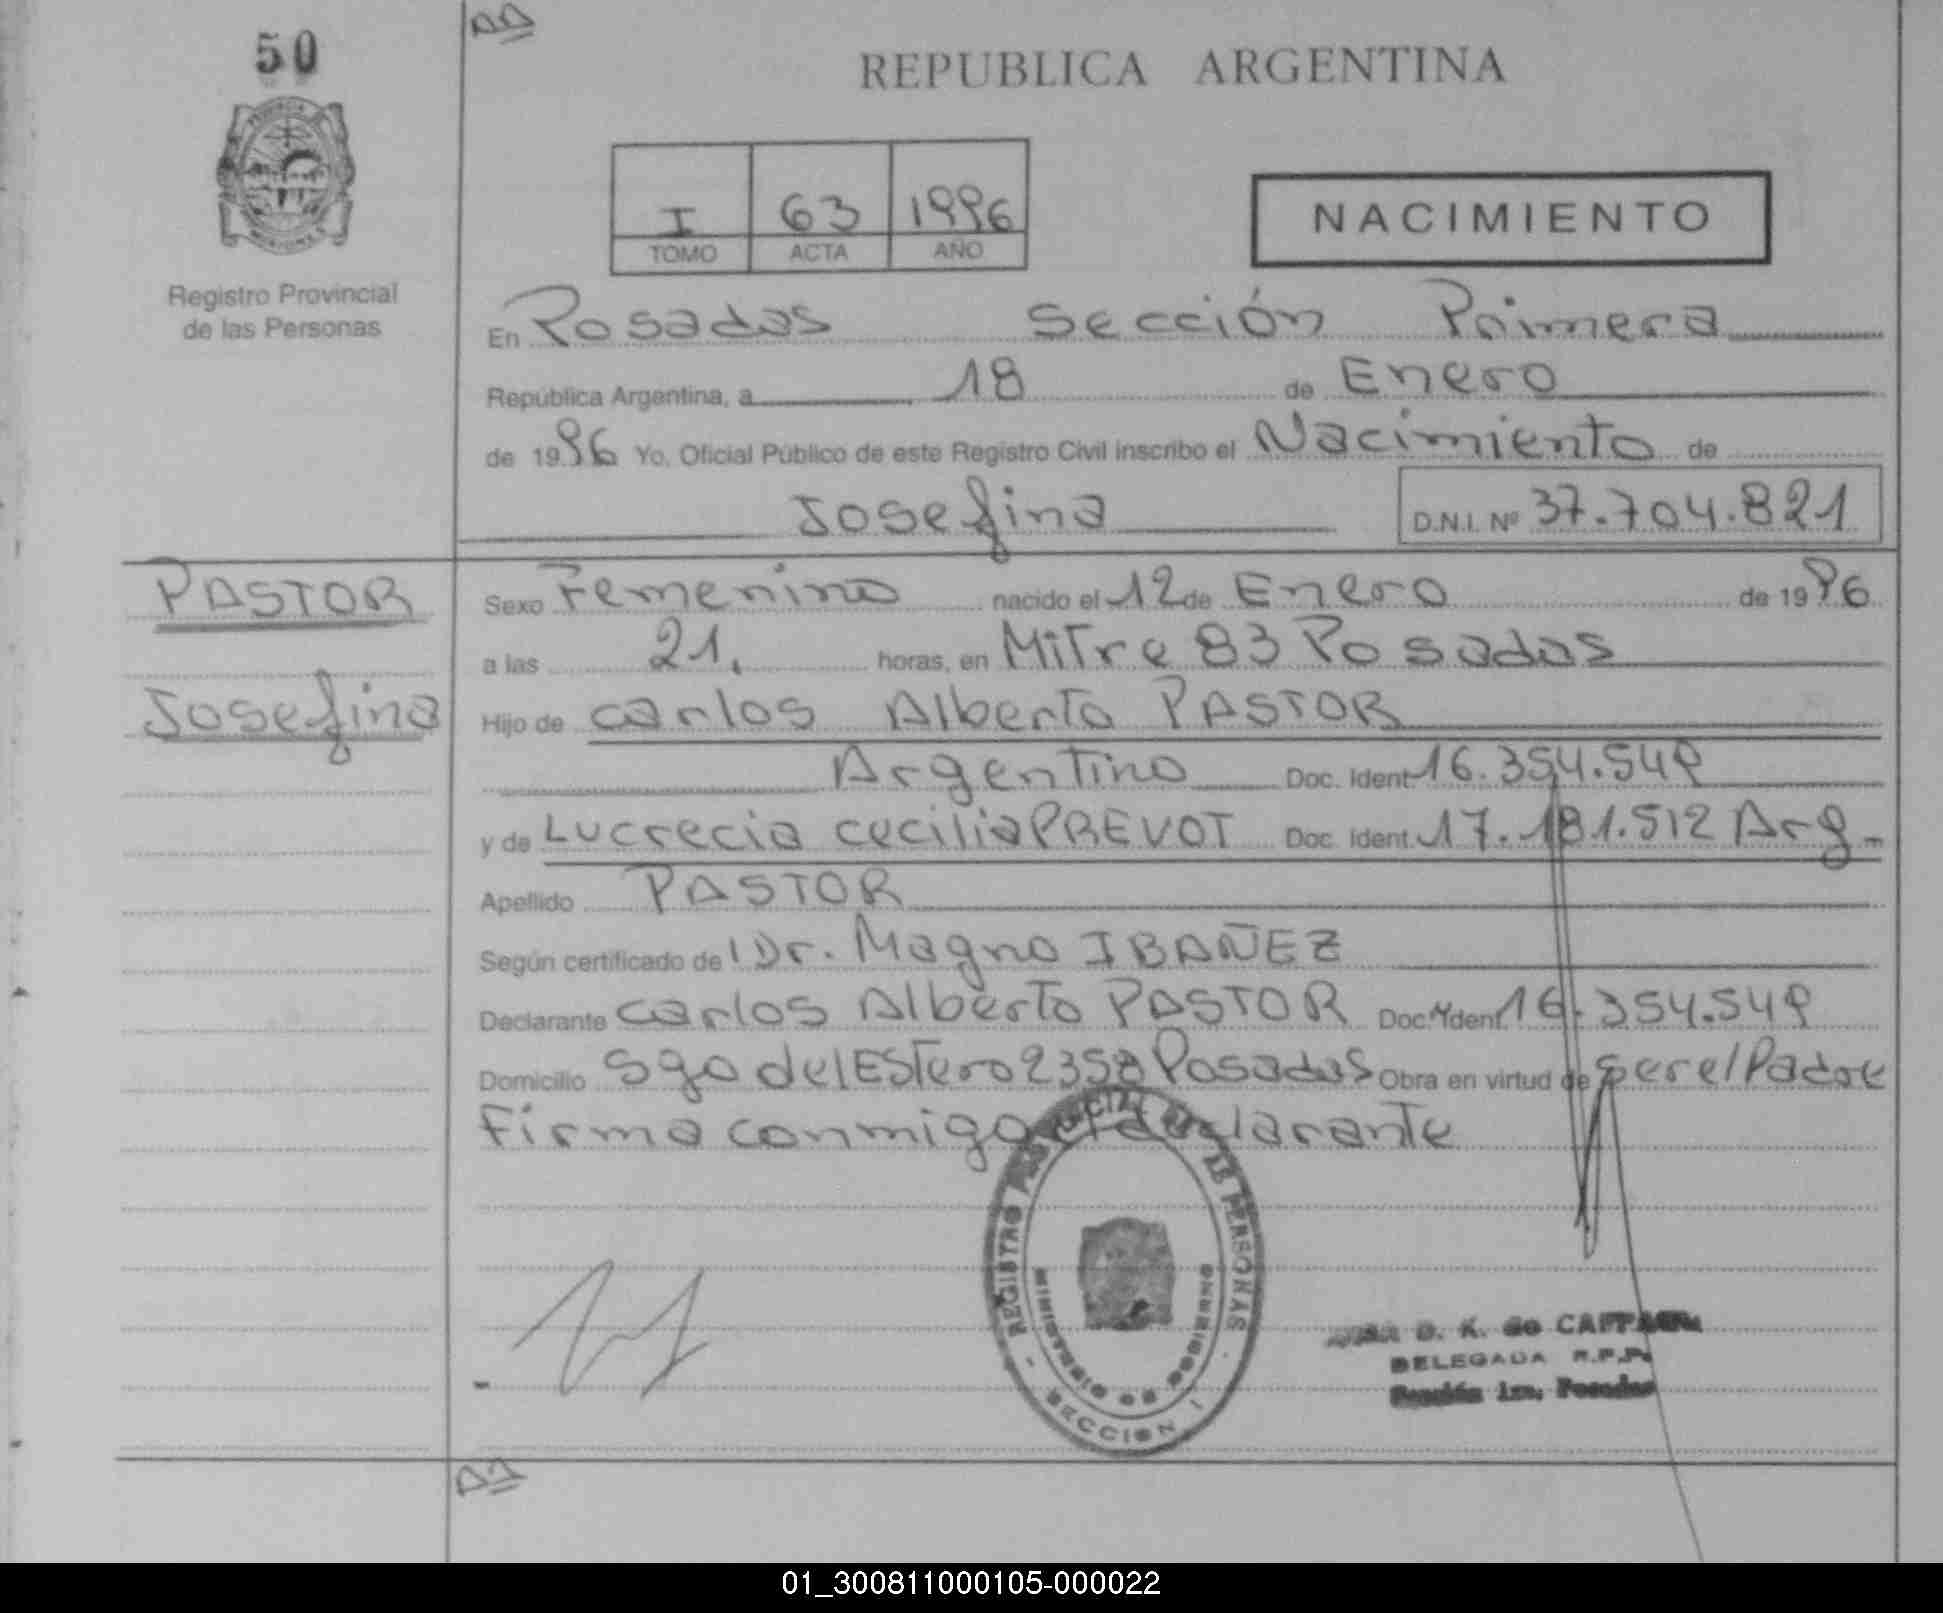 50
REPUBLICA ARGENTINA
I 63 1996
TOMO ACTA AÑO
NACIMIENTO
Registro Provincial
de las Personas
En Posadas Sección Primera
República Argentina, a 18 de Enero
de 1996 Yo, Oficial Público de este Registro Civil inscribo el Nacimiento de
Josefina D.N.I. Nº 37.704.821
PASTOR
Josefina
Sexo Femenino nacido el 12 de Enero de 1996
a las 21. horas, en Mitre 83 Posadas
Hijo de Carlos Alberto PASTOR
Argentino Doc. Ident. 16.354.549
y de Lucrecia Cecilia PREVOT Doc. Ident. 17.181.512 Arg.-
Apellido PASTOR
Según certificado de Dr. Magno IBAÑEZ
Declarante Carlos Alberto PASTOR Doc. Ident. 16.354.549
Domicilio Sgo del EStero 2358 Posadas Obra en virtud de ser el Padre
Firma conmigo el declarante
REGISTRO PROVINCIAL DE LAS PERSONAS
MINISTERIO DE GOBIERNO
SECCION 1
B. K. de
DELEGADA R.P.P.
Sección 1ra. Posadas
01_300811000105-000022